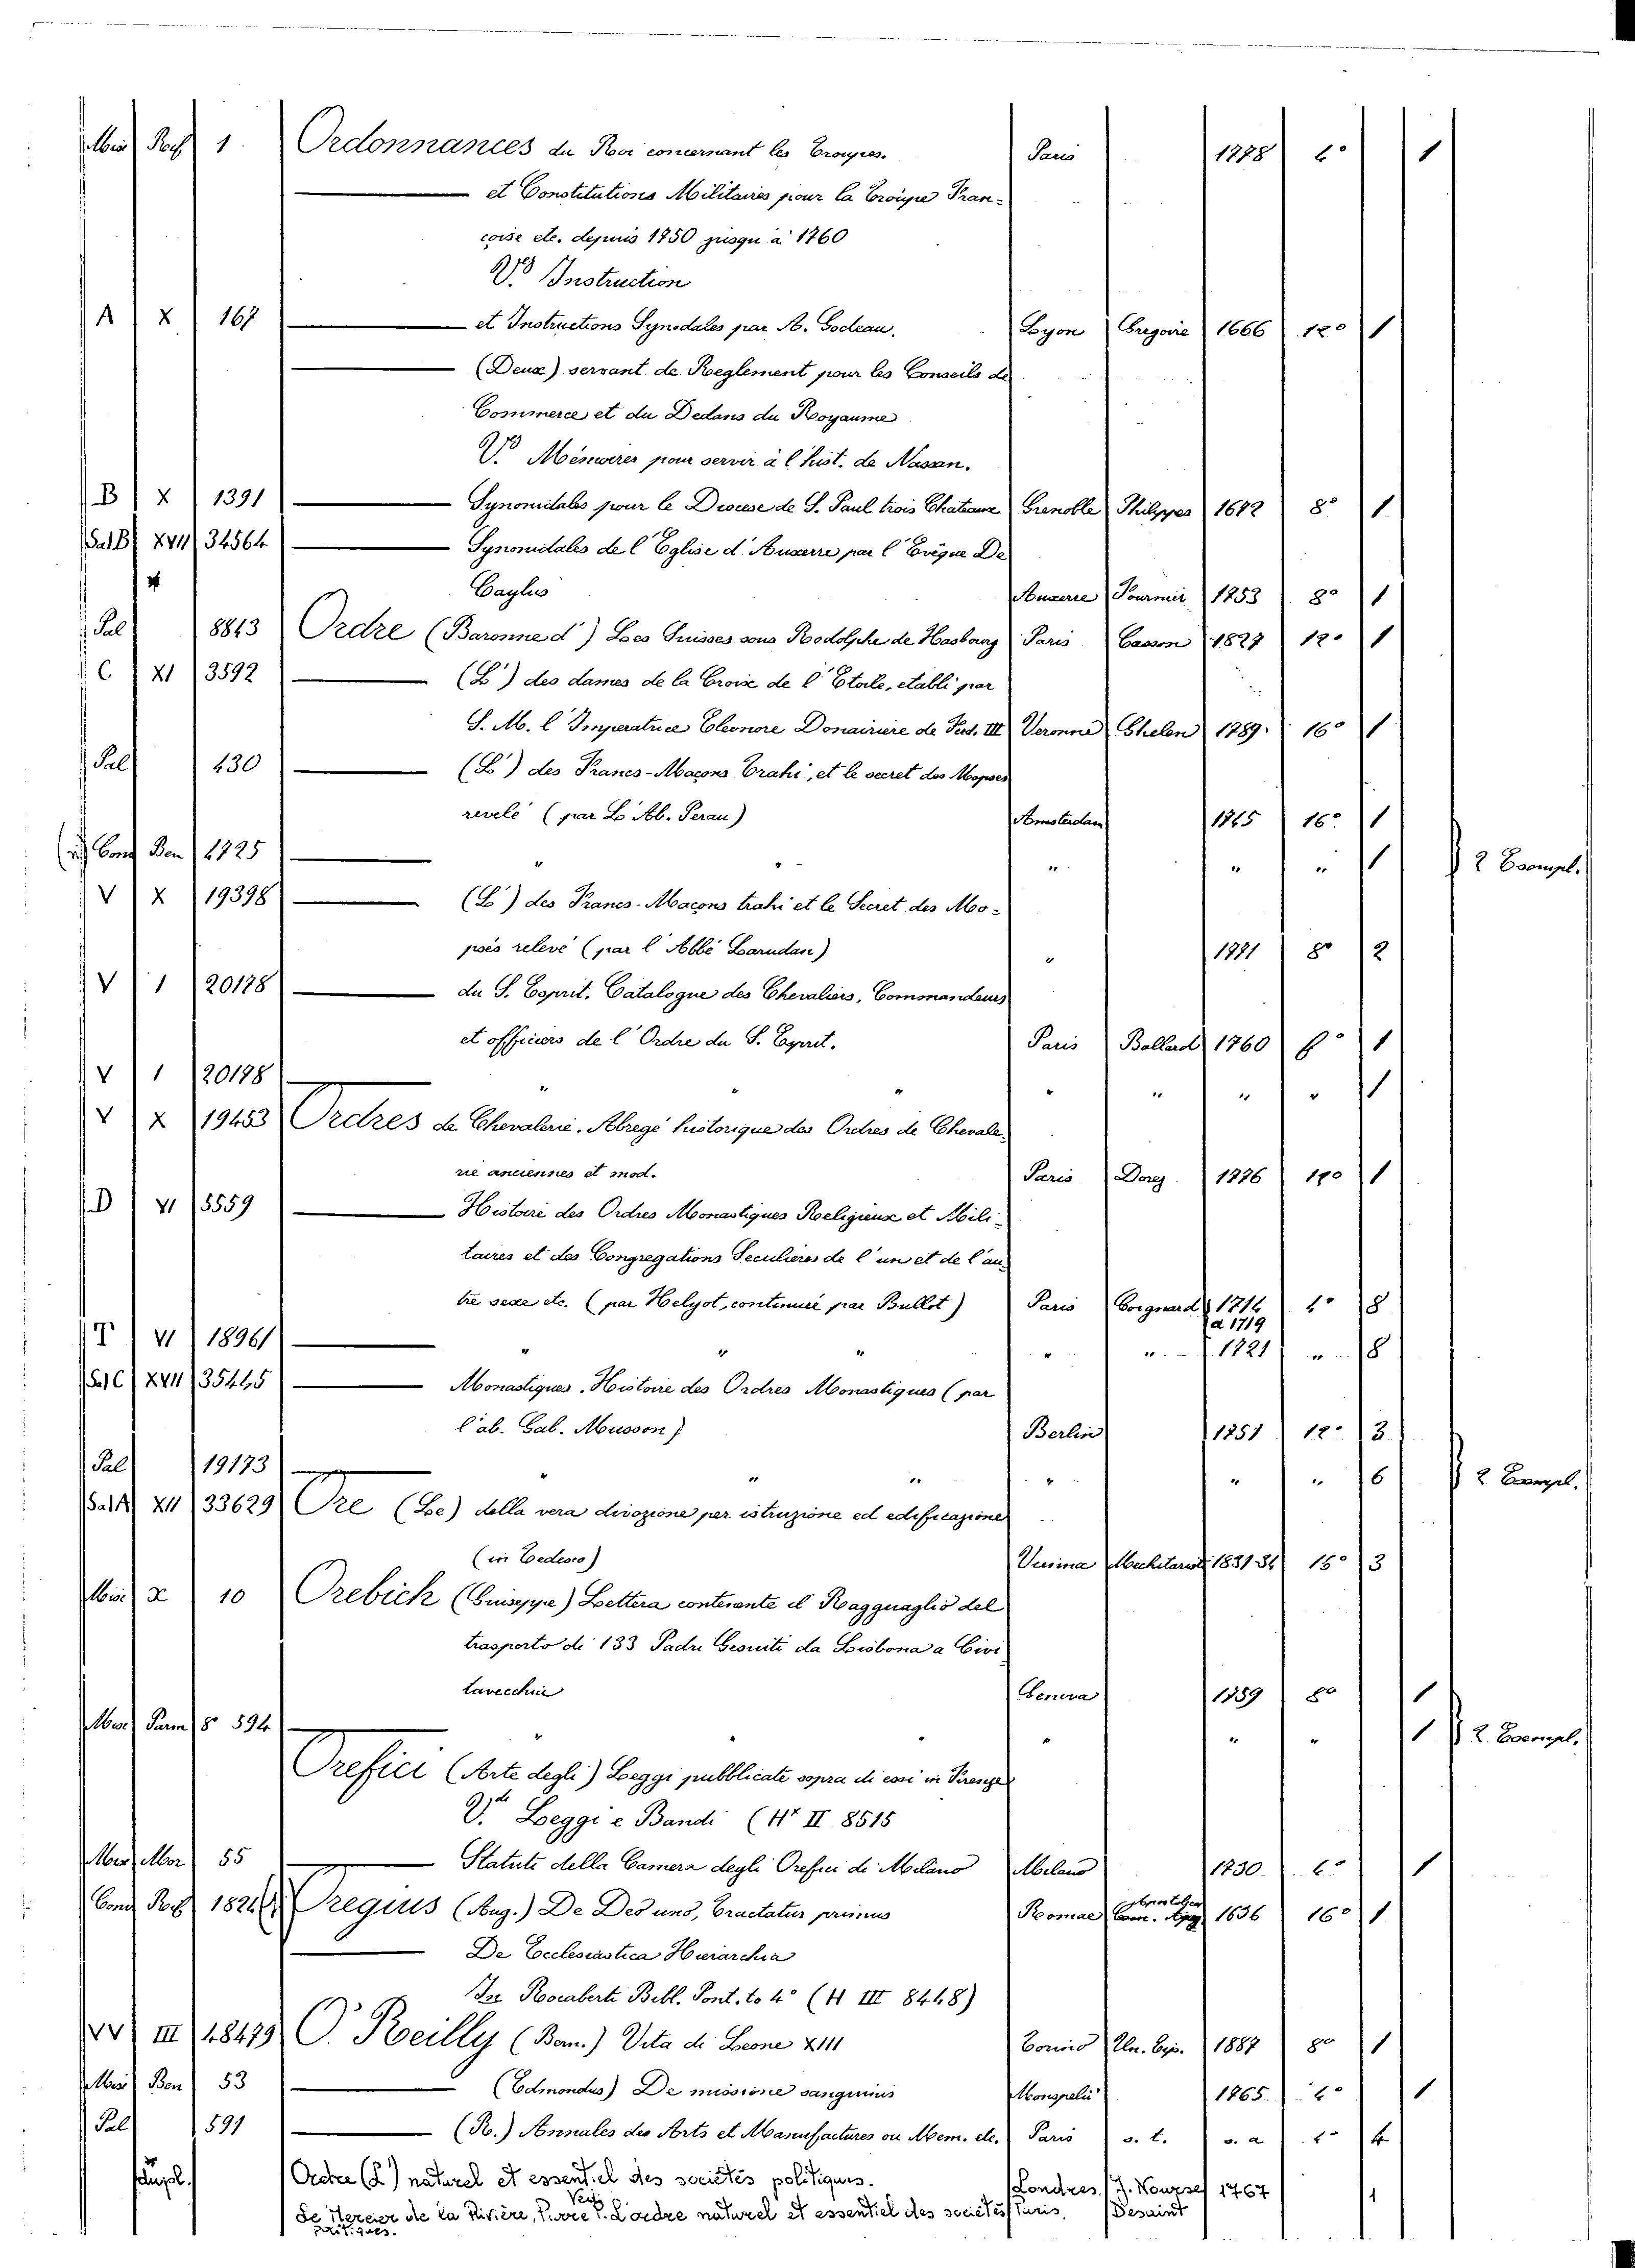 Misc Rof 1. Ordonnances du Roi concernant les Troupes. Paris 1778 4° 1
et Constitutions Militaires pour la Troupe Fran-
çoise etc. depuis 1750 jusqu'a 1760
Vo Instruction
A X 167 et Instructions Synodales par A. Godeau. Lyon Gregoire 1666 12° 1
(Deux) servant de Reglement pour les Conseils de
Commerce et du Dedans du Royaume
Vo Mémoires pour servir à l'hist. de
B X 1391 Synonidales pour le Diocese de S. Paul trois Chateaux Grenoble Philippes 1672 8° 1
Sal B XVII 34564 Synonidales de l'Eglise d'Auxerre par l'Evêque De
Caylus Auxerre Fournier 1753 8° 1
Pal 8843 Ordre (Baronne d') Les Suisses sous Rodolphe de Hasbourg Paris 1827 12° 1
C XI 3592 (L') des dames de la Croix de l'Etoile, etabli par
S. M. l'Imperatrice Eleonore Donairiere de Ferd. III Veronne 1789. 16° 1
Pal 430 (L') des Francs-Maçons Trahi, et le secret des Mopses
revelé (par L'Ab. Perau) Amsterdam 1745 16° 1
Cond Ben 4725 " " " " " 1 2 Exempl.
V X 19398 (L') des Francs-Maçons trahi et le Secret des Mo-
pses relevé (par l'Abbé Larudan) " 1771 8° 2
V 1 20178 du S. Esprit. Catalogue des Chevaliers, Commandeurs
et officiers de l'Ordre du S. Esprit. Paris Ballard 1760 f° 1
V 1 20178 " " " " " " " 1
V X 19453 Ordres de Chevalerie. Abregé historique des Ordres de Chevale-
rie anciennes et mod. Paris Dorez 1776 12° 1
D VI 5559 Histoire des Ordres Monastiques Religieux et Mili-
taires et des Congregations Seculieres de l'un et de l'au-
tre sexe etc. (par Helyot, continué par Bullot) Paris Coignard 1714 4° 8
a 1719
T VI 18961 " " " " " 1721 " 8
Sal C XVII 35445 Monastiques. Histoire des Ordres Monastiques (par
l'ab. Gab. Musson) Berlin 1751 12° 3
Pal 19173 " " " " " " 6 2 Exempl.
Sal A XII 33629 Ore (Le) della vera divozione per istruzione ed edificazione
(in Tedesco) Vienna Mechitaristi 1831-34 15° 3
Misc X 10 Orebich (Guiseppe) Lettera contenente il Ragguaglio del
trasporto di 133 Padri Gesuiti da Lisbona a Civi
tavecchia Genova 1759 8° 1
Misc Parm 8° 594 " " " " " 1 2 Exempl.
Orefici (Arte degli) Leggi pubblicate sopra di essi in Firenze
Vde Leggi e Bandi (Hr II 8515
Misc Mor 55 Statuti della Camera degli Orefici di Milano Milano 1730. 4° 1
Cond Rof 1824 Oregius (Aug.) De Deo uno, Tractatus primus Romae 1636 16° 1
De Ecclesiastica Hierarchia
In Rocaberti Bibl. Pont. to 4° (H III 8448)
VV III 48479 O'Reilly (Bern.) Vita di Leone XIII Torino Un. Tip. 1887 8° 1
Misc Ben 53 (Edmondus) De missione sanguinis Monspelii 1765. 4° 1
Pal 591 (R.) Annales des Arts et Manufactures ou Mem. etc. Paris s. t. s. a 4° 4
Suppl. Ordre (L') naturel et essentiel des societés politiques. Londres. J. Nourse 1767
Le Mercier de la Rivière, Pierre P. L'ordre naturel et essentiel des societés Paris. Desaint 1
politiques.